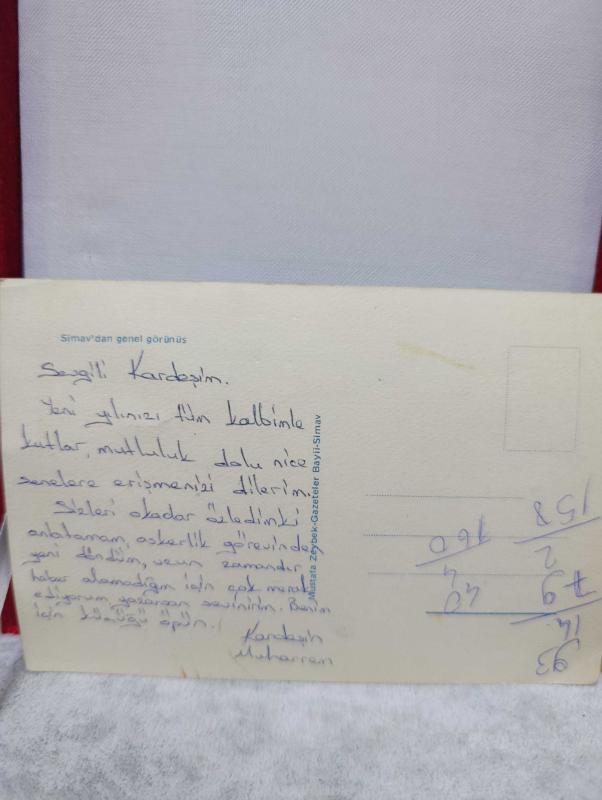 Simav'dan genel görünüs
Sevgili Kardeşim.
Yeni yılınızı tüm kalbimle
kutlar, mutluluk dolu nice
senelere erişmenizi dilerim.
Sizleri okadar özledimki
anlatamam, askerlik görevinden
yeni döndüm, uzun zamandır
haber alamadığım için çok merak
ediyorum yazarsan sevinirim. Benim
için küçüğü öpün.
Kardeşin
Muharrem
Mustafa Zeybek-Gazeteler Bayii-Simav
93
14
79
2
158
40
4
160